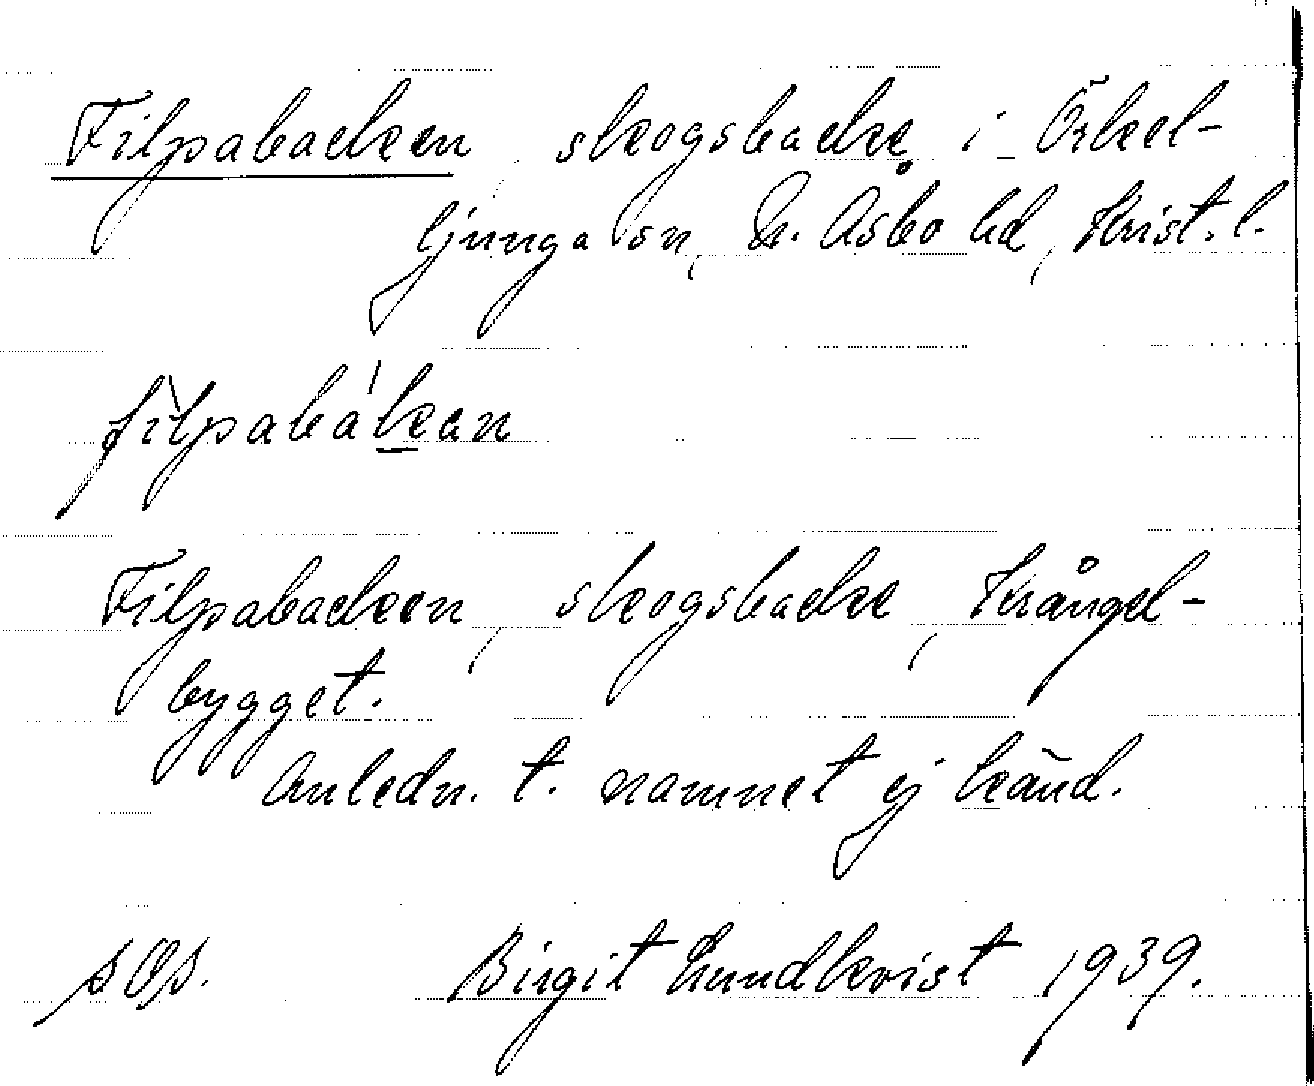 Filpabacken, skogsbacke i Örkel-
ljunga sn, N. Åsbo hd, Krist. l.
fìlpabákan
Filpabacken, skogsbacke, Krångel-
bygget.
Anledn. t. namnet ej känd.
Birgit Lundkvist 1939.